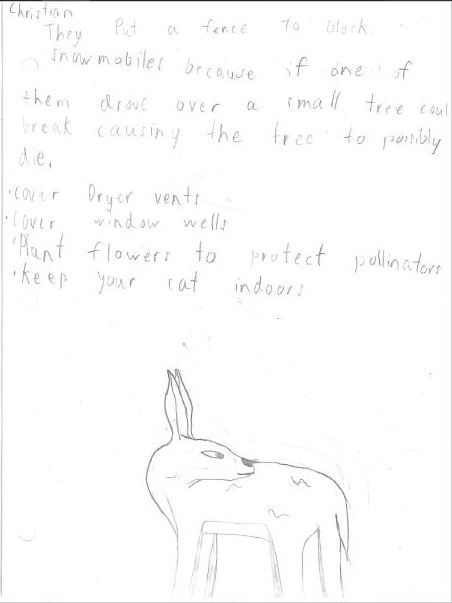 Christian
They Put a fence To block
snowmobiles because if one of
them drove over a small tree coul
break causing the tree to possibly
die.
·cover Dryer vents
·cover window wells
·Plant flowers to protect pollinators
·keep your cat indoors